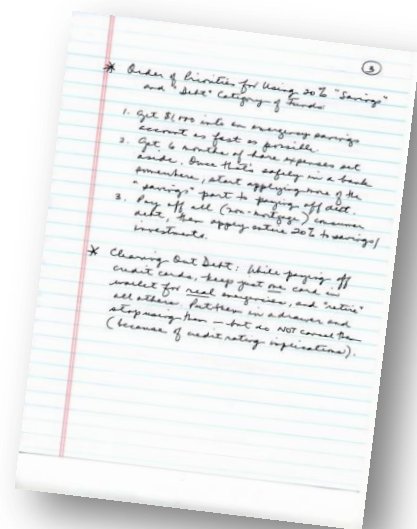 3
* Order of Priorities for Using 20% "Savings"
and "Debt" Category of Funds:
1. Get $1,000 into an emergency savings
account as fast as possible.
2. Get 6 months of bare expenses set
aside. Once that's safely in a bank
somewhere, start applying more of the
"savings" part to paying off debt.
3. Pay off all (non-mortgage) consumer
debt, then apply entire 20% to savings/
investments.
* Cleaning Out Debt: While paying off
credit cards, keep just one card in
wallet for real emergencies, and "retire"
all others. Put them in a drawer and
stop using them — but do NOT cancel them
(because of credit rating implications).